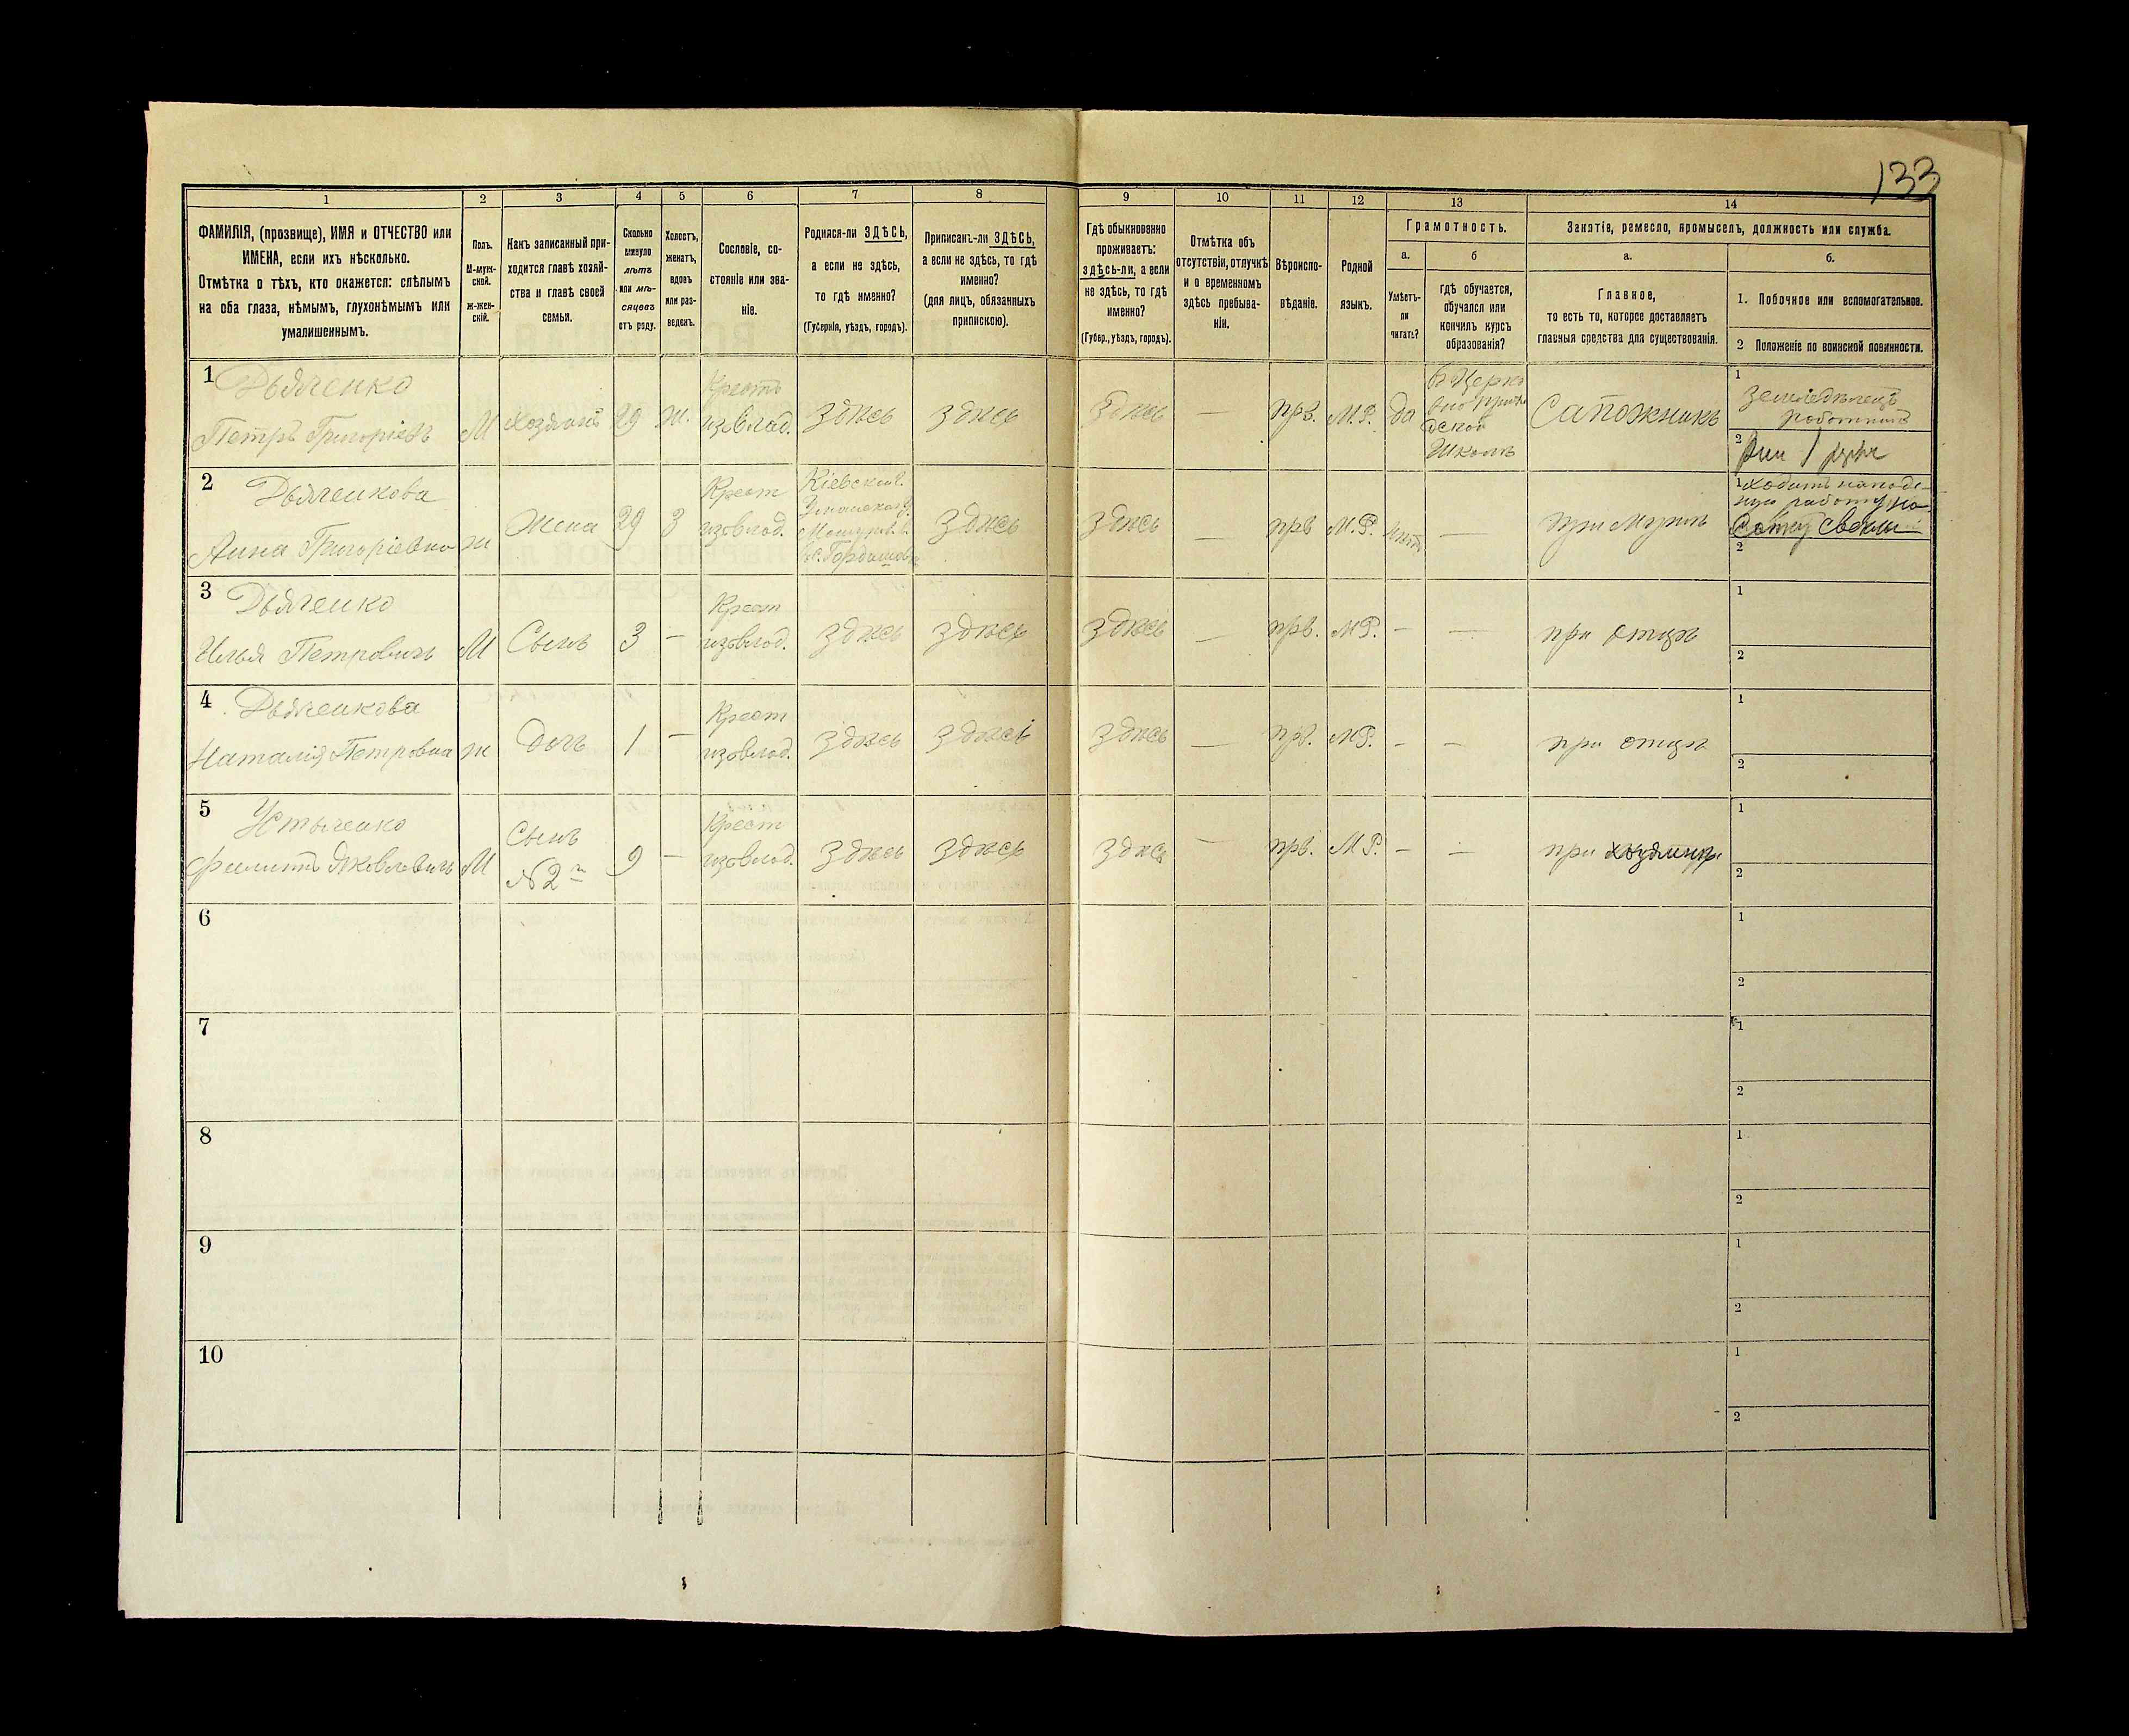 133
1
2
3
4
5
6
7
8
9
10
11
12
13
14
ФАМИЛІЯ, (прозвище), ИМЯ и ОТЧЕСТВО или
ИМЕНА, если ихъ нѣсколько.
Отмѣтка о тѣхъ, кто окажется: слѣпымъ
на оба глаза, нѣмымъ, глухонѣмымъ или
умалишеннымъ.
Полъ.
М-муж-
ской.
ж-жен-
скій.
Какъ записанный при-
ходится главѣ хозяй-
ства и главѣ своей
семьи.
Сколько
минуло
лѣтъ
или мѣ-
сяцевъ
отъ роду.
Холостъ,
женатъ,
вдовъ
или раз-
веденъ.
Сословіе, со-
стояніе или зва-
ніе.
Родился-ли ЗДѢСЬ,
а если не здѣсь,
то гдѣ именно?
(Губернія, уѣздъ, городъ).
Приписанъ-ли ЗДѢСЬ,
а если не здѣсь, то гдѣ
именно?
(для лицъ, обязанныхъ
припискою).
Гдѣ обыкновенно
проживаетъ:
здѣсь-ли, а если
не здѣсь, то гдѣ
именно?
(Губер., уѣздъ, городъ).
Отмѣтка объ
отсутствіи, отлучкѣ
и о временномъ
здѣсь пребыва-
ніи.
Вѣроиспо-
вѣданіе.
Родной
языкъ.
Грамотность.
а.
Умѣетъ-
ли
читать?
б
гдѣ обучается,
обучался или
кончилъ курсъ
образованія?
Занятіе, ремесло, промыселъ, должность или служба.
а.
Главное,
то есть то, которое доставляетъ
главныя средства для существованія.
б.
1. Побочное или вспомогательное.
2 Положеніе по воинской повинности.
1
Дьяченко
Петръ Григоріевъ
М
хозяинъ
29
ж.
Крестъ
изъвлад.
здѣсь
здѣсь
здѣсь
—
прв.
М.Р.
да
Школѣ
Сапожникъ
1
земледѣлецъ
работникъ
2
2
Дьяченкова
Анна Григоріевна
ж
Жена
29
з
Крест
изъвлад.
Кіевской г.
здѣсь
здѣсь
—
прв
М.Р.
нѣтъ
—
при мужѣ
1
2
3
Дьяченко
Илья Петровичъ
М
Сынъ
3
—
Крест
изъвлад.
здѣсь
здѣсь
здѣсь
—
прв.
М.Р.
—
—
при отцѣ
1
2
4
Дьяченкова
Наталія Петровна
ж
Дочь
1
—
Крест
изъвлад.
здѣсь
здѣсь
здѣсь
—
прв.
М.Р.
—
—
при отцѣ
1
2
5
Филиппъ Яковлевичъ
М
Сынъ
№ 2
9
—
Крест
изъвлад.
здѣсь
здѣсь
здѣсь
—
прв.
М.Р.
—
—
при хозяинѣ
1
2
6
1
2
7
1
2
8
1
2
9
1
2
10
1
2